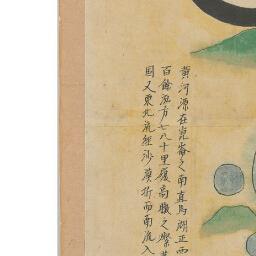 黄河源在崑崙之南直馬湖正西
百餘泓方七八十里履高瞰之燦若
国又東北流經沙漠折而南流入